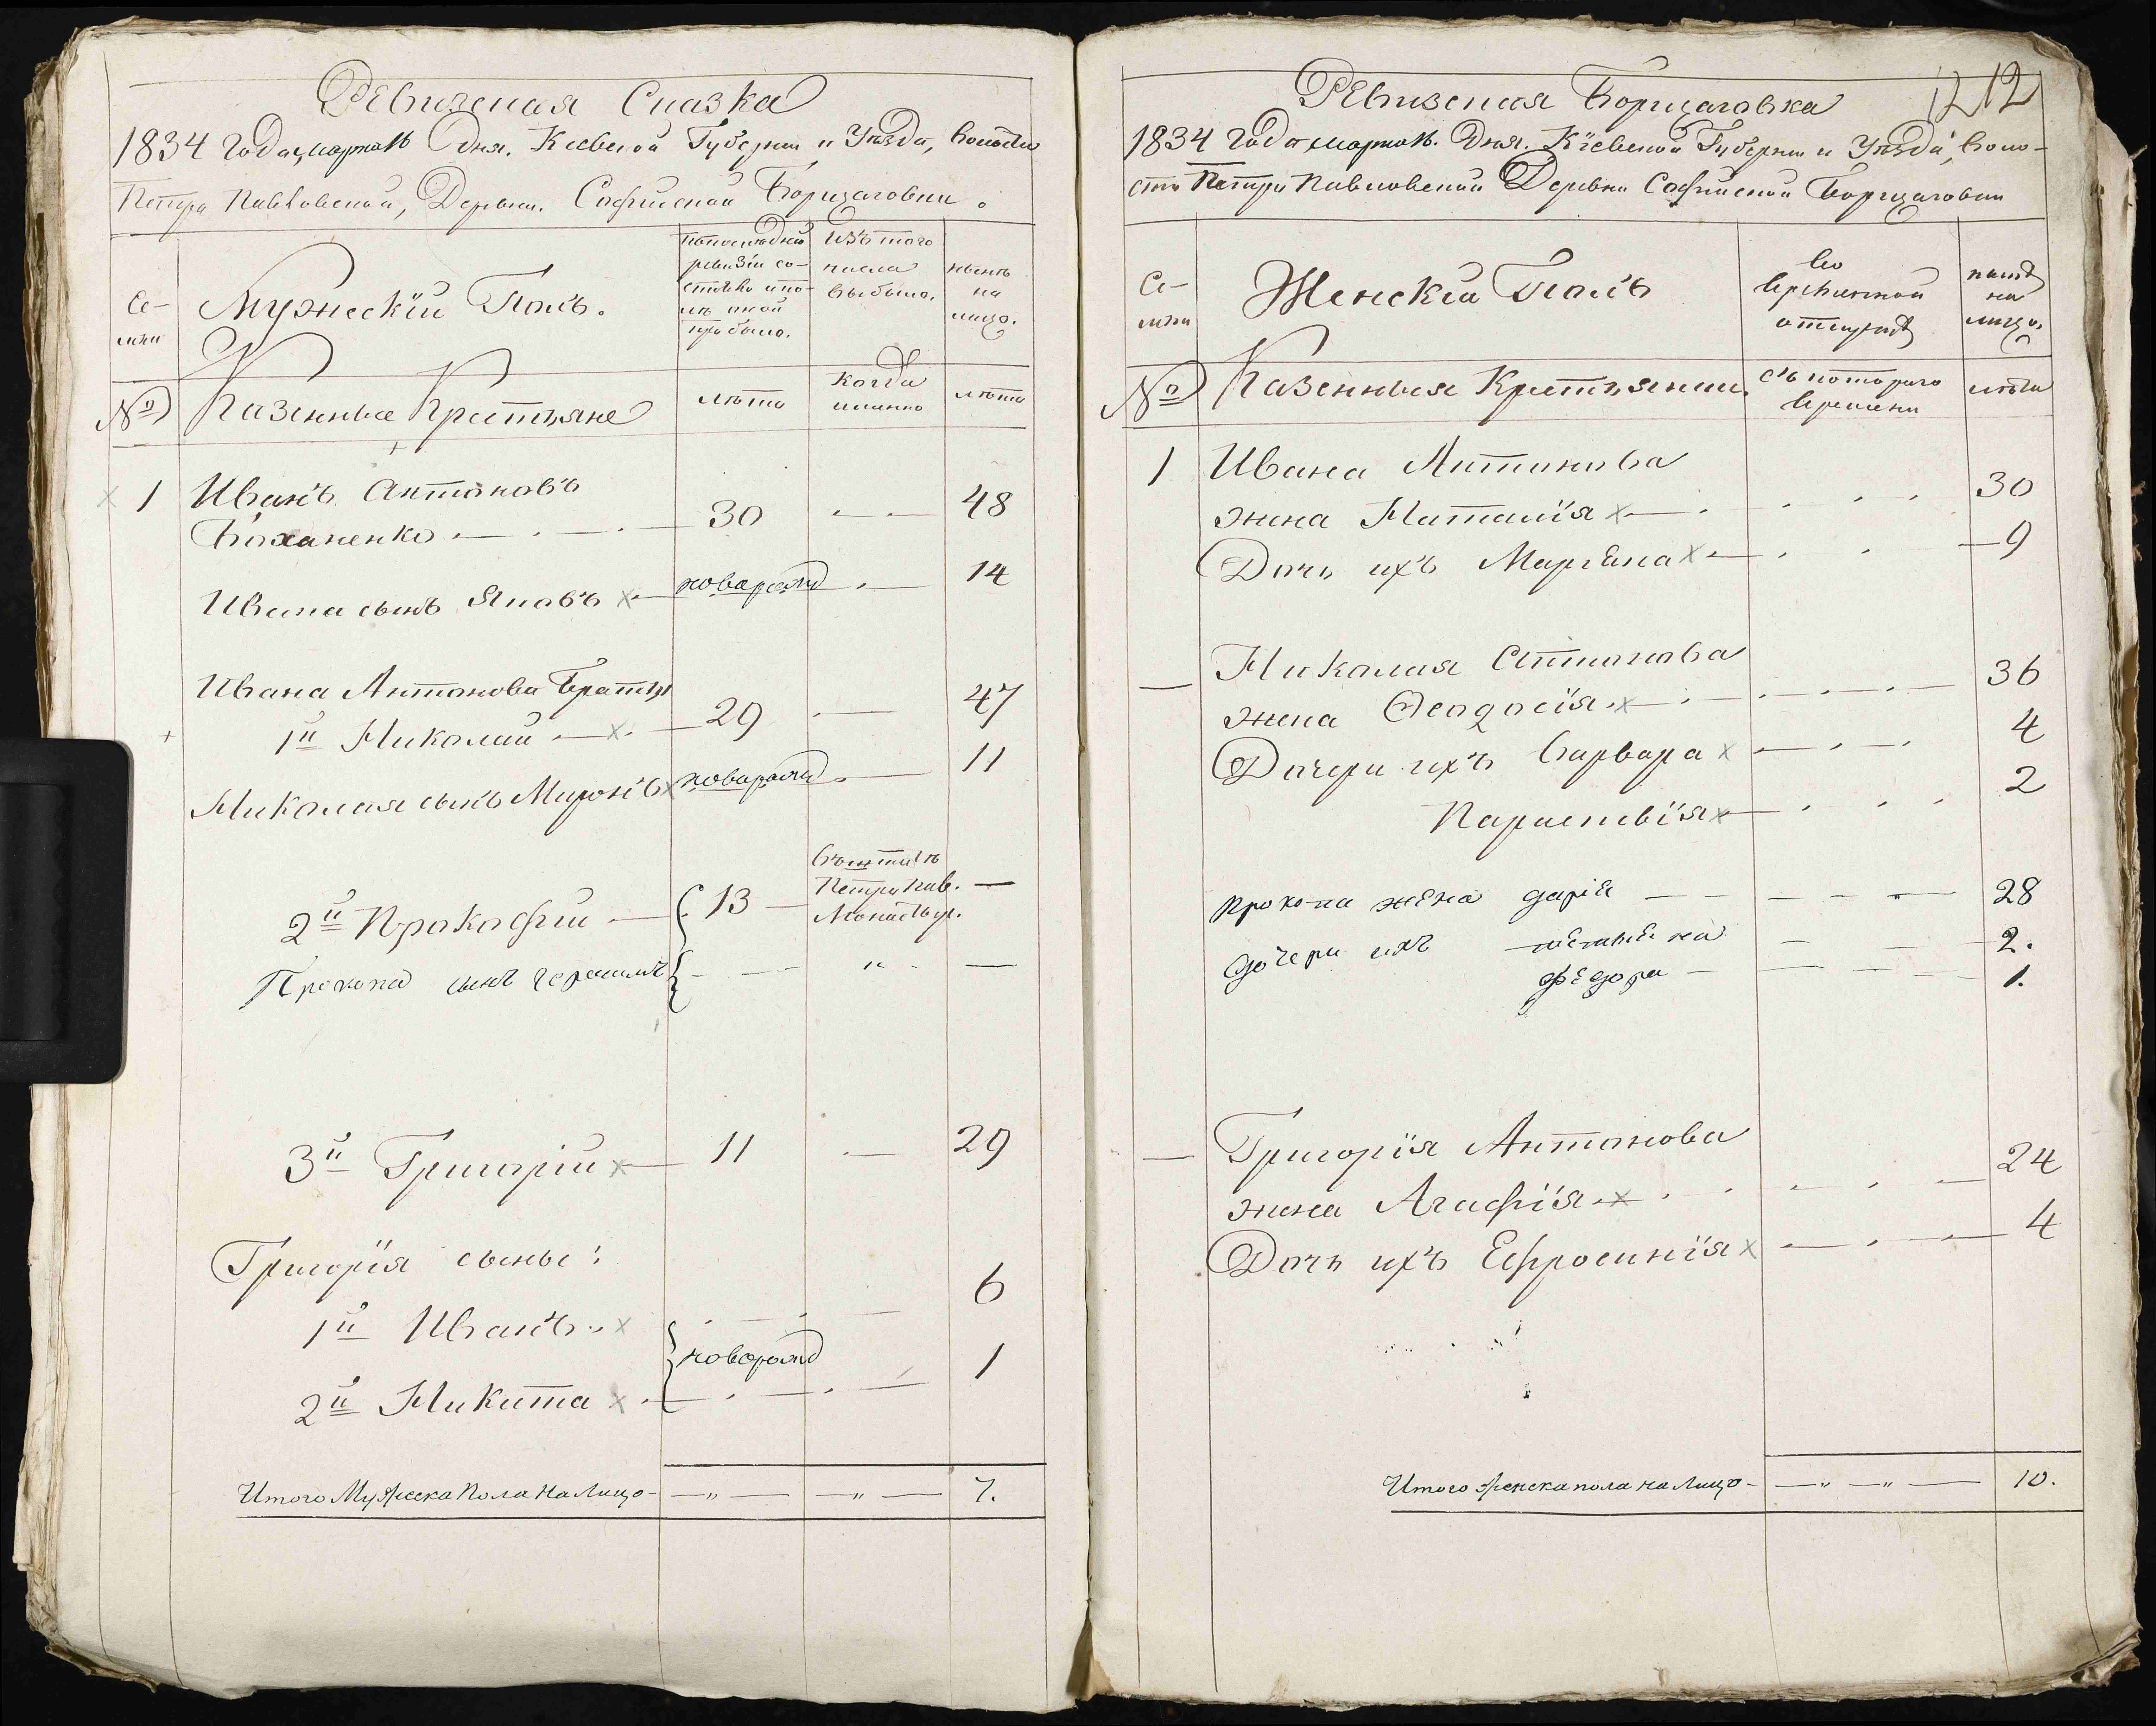 Ревизская Сказка
1834 года марта 16 Дня. Киевской Губернии и Уезда, волости
Петро Павловской, Деревни. Софийской Борщаговки.
Се-
мьи
Мужескій Полъ.
По последней
ревизіи со-
стояло и по-
сле оной
прибыло.
Изъ того
числа
выбыло.
ныне
на
лицо.
№
Казенные Крестьяне
лета
когда
именно
лета
1 Иванъ Антоновъ
Боханенко 30 48
Ивана сынъ Яковъ новорожд 14
Ивана Антонова Братья
1й Николай 29 47
Николая сынъ Миронъ новорожд 11
2й Прокофій 13
Петро Пав.
Монастыр.
Прокопа сынъ Герасимъ "
3й Григорій 11 29
Григорія сыны:
1й Иванъ 6
новорожд
2й Никита 1
Итого Мужеска Пола На Лицо - " - " - 7.
Ревизская Борщаговка 12 12
1834 года марта 16. Дня. Кіевской Губернии и Уезда, Воло-
сти Петро Павловской Деревни Софийской Борщаговки
Се-
мьи
Женскій Полъ
Во
временной
отлучке
ныне
на
лицо.
№
Казенныя Крестьянки.
съ котораго
времени
лета
1 Ивана Антонова
жена Наталія 30
Дочь ихъ Маріана 9
Николая Антонова
жена Феодосія 36
Дочери ихъ Варвара 4
Параскевія 2
Прокопа жена дарія 28
дочери ихъ 2.
федора 1.
Григорія Антонова
жена Агафія 24
Дочь ихъ Ефросинія 4
Итого женска пола на Лицо - " - " - 10.